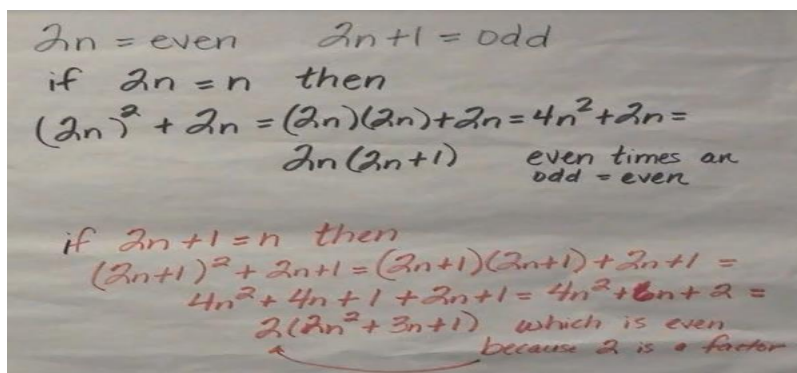 2n = even 2n+1 = odd
if 2n = n then
(2n)² + 2n = (2n)(2n)+2n = 4n²+2n =
2n(2n+1) even times an
odd = even
if 2n+1 = n then
(2n+1)² + 2n+1 = (2n+1)(2n+1) + 2n+1 =
4n² + 4n + 1 + 2n+1 = 4n²+6n+2 =
2(2n² + 3n+1) which is even
because 2 is a factor